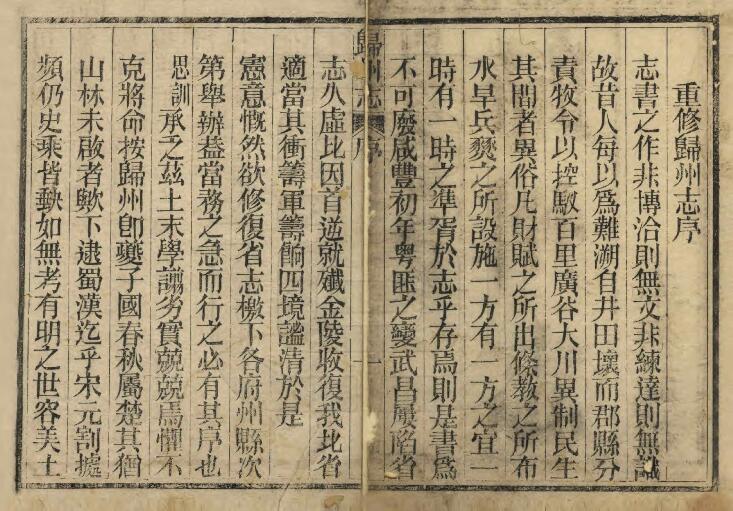 重修歸州志序
志書之作非博洽則無文非練達則無識
故昔人每以為難溯自井田壞而郡縣分
責牧令以控馭百里廣谷大川異制民生
其間者異俗凡財賦之所出條教之所布
水旱兵燹之所設施一方有一方之宜一
時有一時之準胥於志乎存焉則是書為
不可廢咸豐初年粵匪之變武昌屢陷省
歸州志 序 一
志久虛比因首逆就殲金陵收復我北省
適當其衝籌軍籌餉四境謐清於是
憲意慨然欲修復省志檄下各府州縣次
第舉辦葢當務之急而行之必有其序也
思訓承乏茲土末學譾劣實兢兢焉懼不
克將命按歸州卽夔子國春秋屬楚其猶
山林未啟者歟下逮蜀漢迄乎宋元割據
頻仍史乘皆缺如無考有明之世容美土